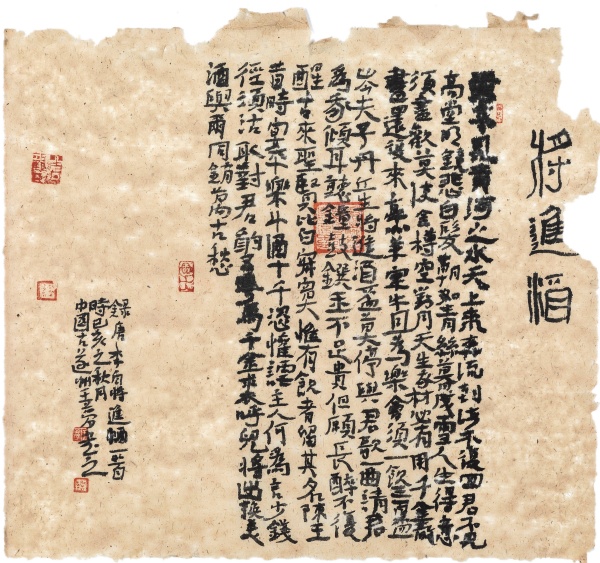 将進酒
君不見黄河之水天上來奔流到海不復回君不見
高堂明鏡悲白髮朝如青絲暮成雪人生得意
須盡歡莫使金樽空對月天生我材必有用千金散
盡還復來烹羊宰牛且為樂會須一飲三百盃
岑夫子丹丘生將進酒盃莫停與君歌一曲請君
為我傾耳聽鐘鼓饌玉不足貴但願長醉不復
醒古來聖賢皆寂寞惟有飲者留其名陳王
昔時宴平樂斗酒十千恣讙謔主人何為言少錢
徑須沽取對君酌五花馬千金裘呼兒將出換美
酒與爾同銷萬古愁
錄唐李白將進酒一首
時己亥之秋月
中國古遂州王書之